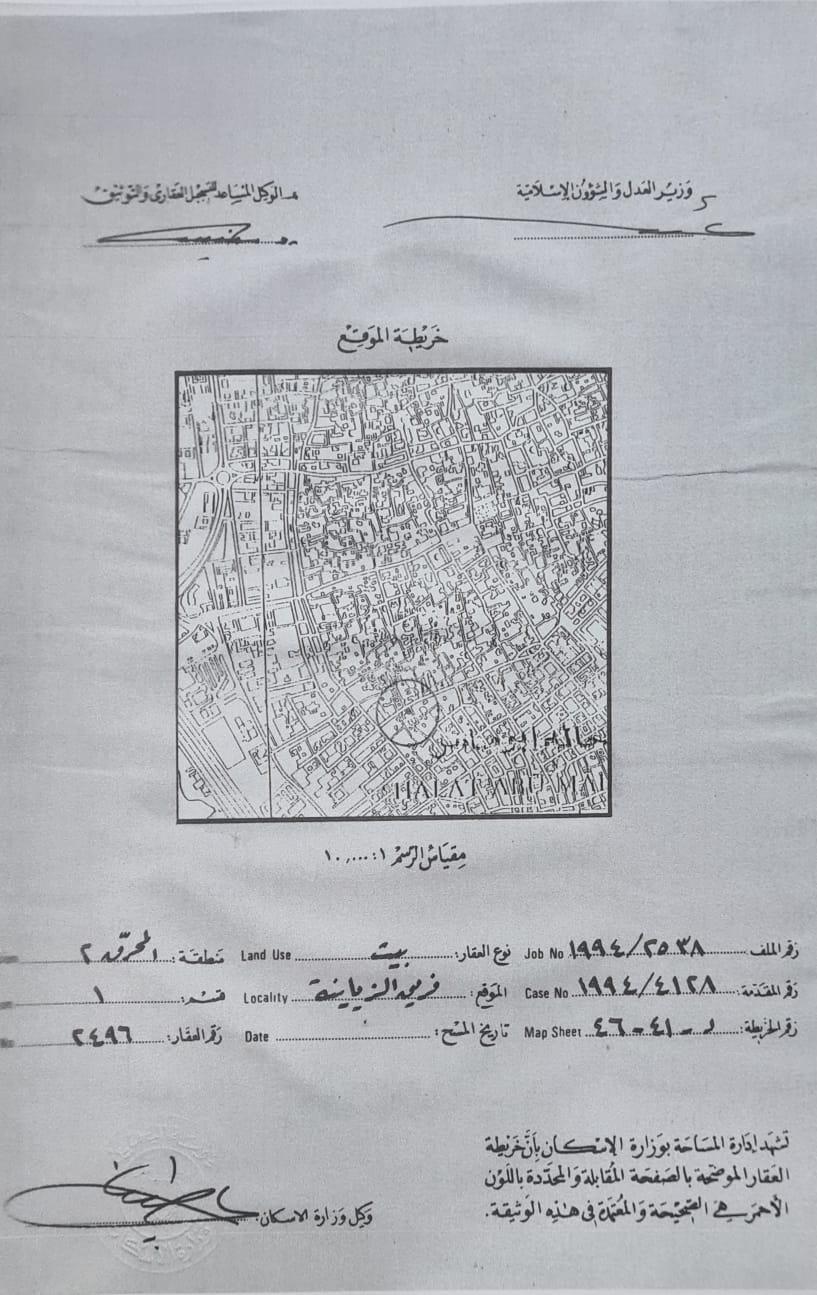 وزير العدل والشؤون الإسلامية
الوكيل المساعد للتسجيل العقاري والتوثيق
خريطة الموقع
HALAT ABU MA
مقياس الرسم ١ : ١٠,٠٠٠
رقم الملف Job No ١٩٩٤/٢٥٣٨ نوع العقار: بيت Land Use منطقة: المحرق ٢
رقم المقدمة: Case No ١٩٩٤/٤١٢٨ الموقع: فريج الزياينة Locality قسم: ١
رقم الخريطة: Map Sheet ٤٦-٤١- تاريخ المسح: Date رقم العقار: ٢٤٩٦
تشهد إدارة المساحة بوزارة الإسكان بأن خريطة
العقار الموضحة بالصفحة المقابلة والمحددة باللون
الأحمر هي الصحيحة والمعتمدة في هذه الوثيقة.
وكيل وزارة الاسكان: